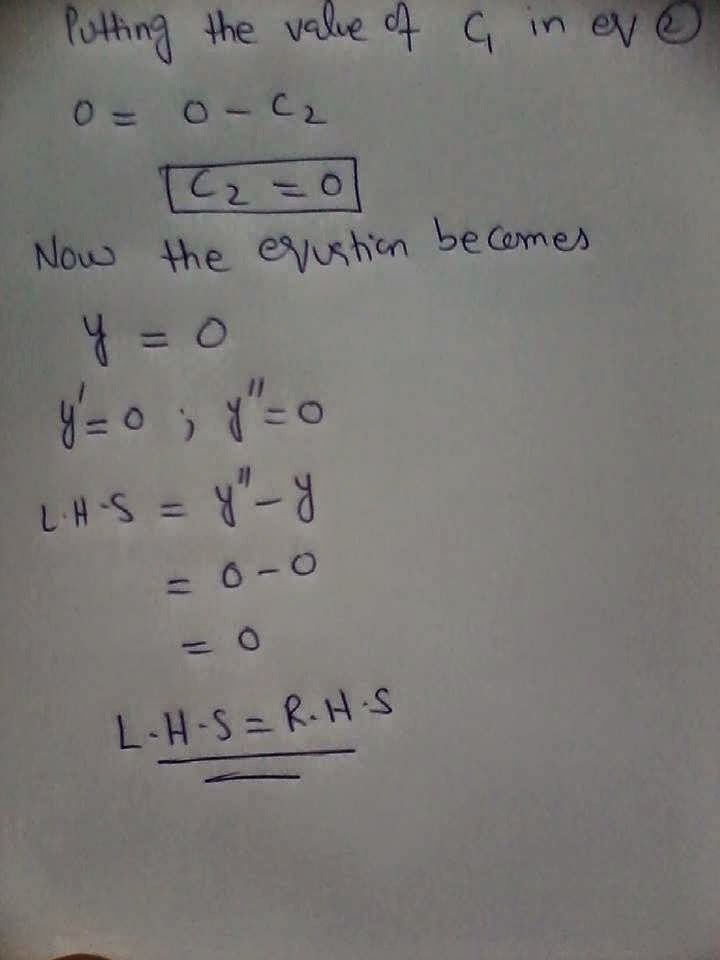 Putting the value of C₁ in eq ②
0 = 0 - C₂
C₂ = 0
Now the equation becomes
y = 0
y' = 0 ; y'' = 0
L.H.S = y'' - y
= 0 - 0
= 0
L.H.S = R.H.S